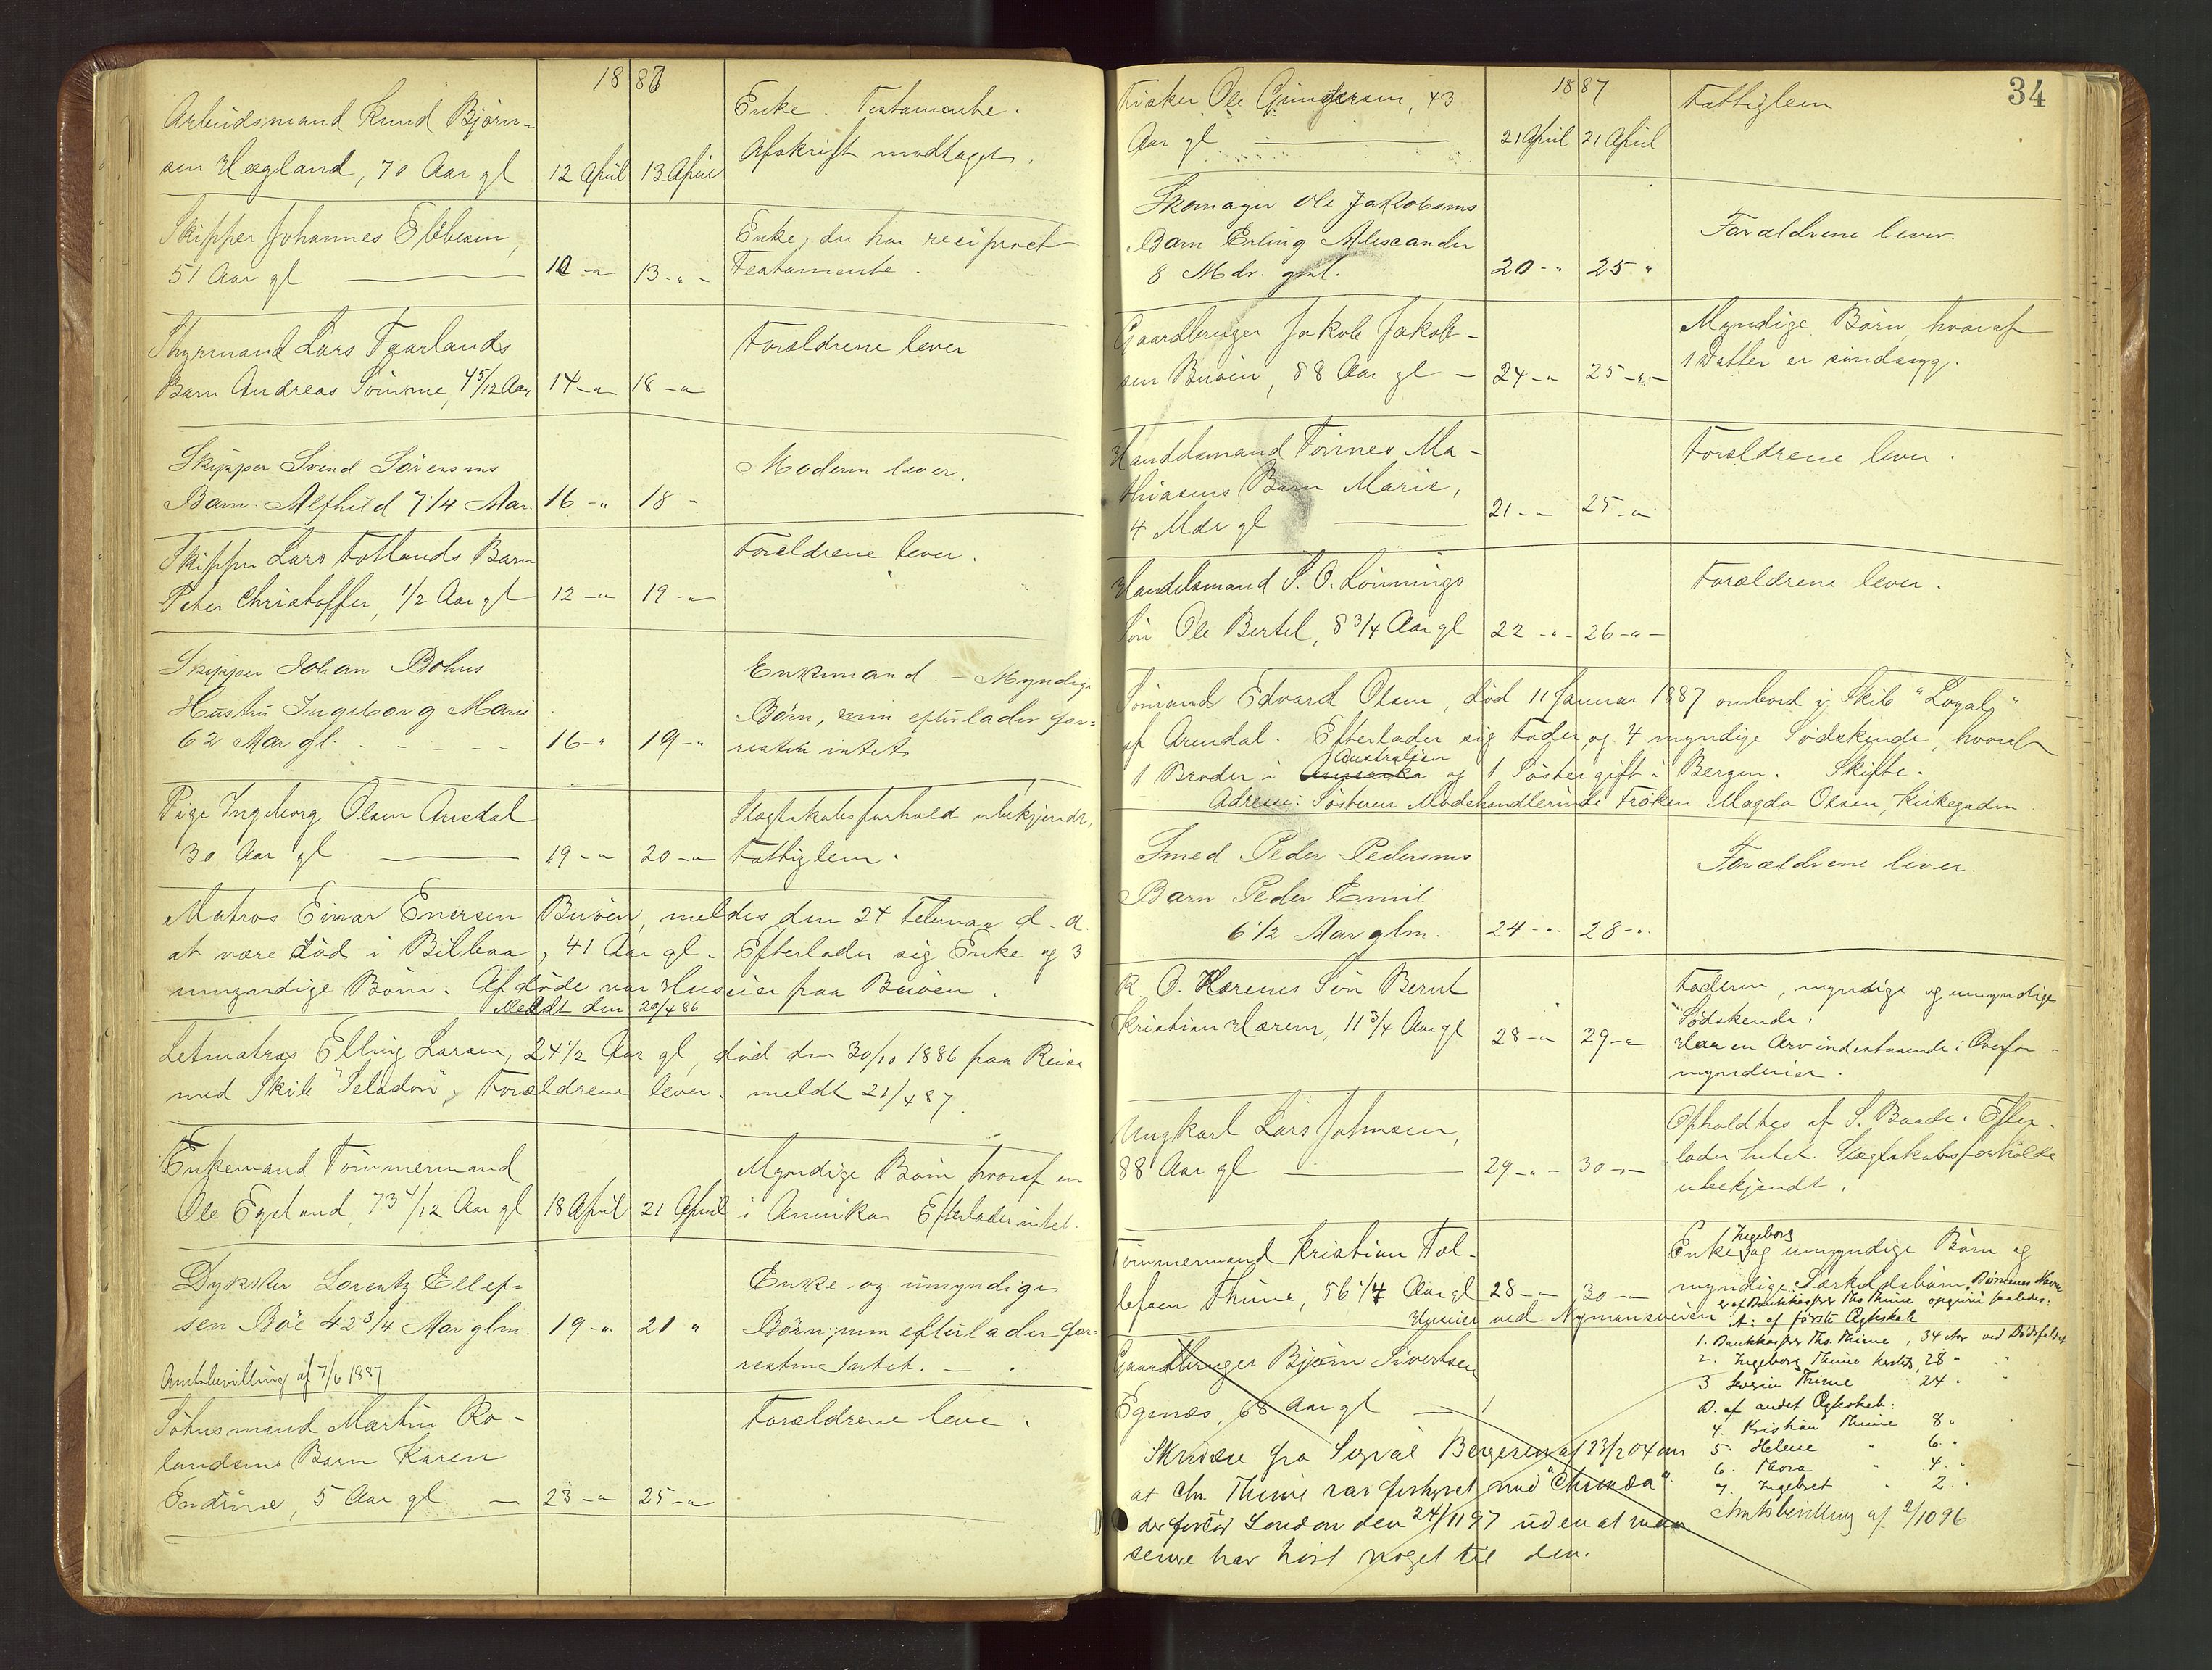 1887
Arbeidsmand Knud Björn-
sen Hægland, 70 Aar gl 12 April 13 April
Enke. Testamente.
Afskrift modtaget.
Skipper Johannes Ebbesen,
51 Aar gl 10 -"- 13 -"-
Enke, der har reciproct
Testamente.
Styrmand Lars Faarlands
Barn Andreas Sömme, 4 5/12 Aar 14 -"- 18 -"-
Forældrene lever
Skipper Svend Sörensens
Barn Alfhild 7 1/4 Aar. 16 -"- 18 -
Moderen lever.
Skipper Lars Totlands Barn
Peter Christoffer, 1/2 Aar gl 12 -"- 19 -"-
Forældrene lever.
Skipper Johan Bohus
Hustru Ingeborg Marie
62 Aar gl. - - - - - 16 -"- 19 -"-
Enkemand. - Myndige
Börn, men efterlader for-
resten intet
Pige Ingeborg Olsen Ausdal
30 Aar gl 19 -"- 20 -"-
Slægtskabsforhold ubekjendt,
Fattiglem.
Matros Einar Enersen Buöen, meldes den 24 Februar d. A.
at være död i Bilbao, 41 Aar gl. Efterlader sig Enke og 3
umyndige Börn. Afdöde var Huseier paa Buöen.
Meldt den 20/4 86
Letmatros Elling Larsen, 24 1/2 Aar gl, död den 30/10 1886 paa Reise
med Skib "Seladon", Forældrene lever. meldt 21/4 87.
Enkemand Tömmermand
Ole Egeland, 73 4/12 Aar gl 18 April 21 April
Myndige Börn hvoraf en
i Amerika Efterlader intet.
Dykker Lorentz Ellef-
sen Böe 42 3/4 Aar glm. 19 -"- 21 "
Enke og umyndige
Börn, men efterlader for-
resten Intet. -
Amtsbevilling af 7/6 1887
Söhusmand Martin Ro-
landsens Barn Karen
Endrine, 5 Aar gl - 23 -"- 25 -"-
Forældrene leve.
34
1887
Fisker Ole Gundersen, 43
Aar gl 21 April 21 April
Fattiglem
Skomager Ole Jakobsens
Barn Erling Alexander
8 Mdr. gml. 20 -"- 25 "
Forældrene lever.
Gaardbruger Jakob Jakob-
sen Buöen, 88 Aar gl - 24 -"- 25 -"-
Myndige Börn, hvoraf
1 Datter er sindssyg.
Handelsmand Tönnes Ma-
thiasens Barn Marie,
4 Mdr gl 21 -"- 25 -"-
Forældrene lever.
Handelsmand S. O. Lönnings
Sön Ole Bertel, 8 3/4 Aar gl 22 -"- 26 -"-
Forældrene lever.
Sömand Edvard Olsen, död 11 Januar 1887 ombord i Skib "Loyal"
af Arendal. Efterlader sig Fader og 4 myndige Södskende, hvoraf
1 Broder i Amerika Australien og 1 Söster gift i Bergen. Skifte.
Adresse: Sösteren Modehandlerinde Fröken Magda Olsen, Kirkegaden
Smed Peder Pedersens
Barn Peder Emil
6 1/2 Aar glm. 24 -"- 28 -"-
Forældrene lever.
R. O. Hærems Sön Bernt
Kristian Hærem, 11 3/4 Aar gl 28 -"- 29 -"-
Faderen, myndige og umyndige
Södskende.
Har en Arv indestaaende i Overfor-
mynderiet.
Ungkarl Lars Johnsen,
88 Aar gl 29 -"- 30 -"-
Opholdtes af S. Baade. Efter-
lader Intet. Slægtskabsforholde
ubekjendt.
Tömmermand Kristian Tol-
lefsen Thime, 56 1/4 Aar gl 28 -"- 30 -"-
Huseier ved Nymansveien
Enke Ingeborg og umyndige Börn og
myndige Særkuldsbörn. Börnenes Navne
er af Bankkasserer Ths. Thime opgivne saaledes:
A: af förste Ægteskab
1. Bankkasserer Ths. Thime, 34 Aar ved Dödsfaldet
2. Ingeborg Thime 28 "
3 Severin Thime 24 "
B. af andet Ægteskab:
4. Kristian Thime 8 "
5. Helene " 6 "
6. Thora " 4 "
7. Ingebret " 2 "
Amtsbevilling af 2/10 96
Gaardbruger Björn Sivertsen
Egenæs, 68 Aar gl
Skrivelse fra Sigval Bergesen af 23/2 04 om
at Chr. Thime var forhyret med "Chrinda"
der forlod London den 24/11 97 uden at man
senere har hört noget til den.